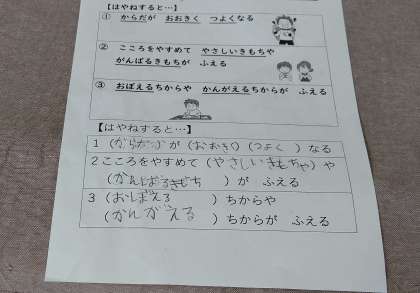 【はやねすると…】
① からだが おおきく つよくなる
② こころをやすめて やさしいきもちや
がんばるきもちが ふえる
③ おぼえるちからや かんがえるちからが ふえる
【はやねすると…】
1（からだ）が（おおきく）（つよく）なる
2こころをやすめて（やさしいきもちや）や
（がんばるきもち）が ふえる
3（おぼえる）ちからや
（かんがえる）ちからが ふえる